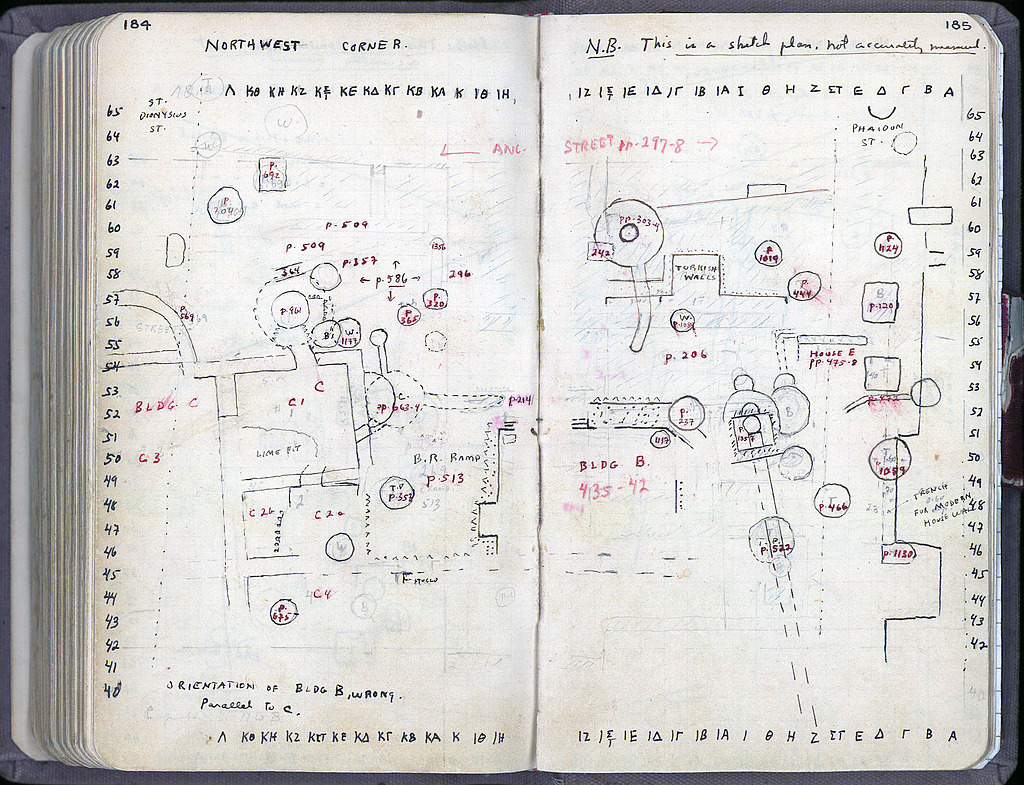 184
NORTHWEST CORNER.
Λ ΚΘ ΚΗ ΚΖ ΚΣΤ ΚΕ ΚΔ ΚΓ ΚΒ ΚΑ Κ ΙΘ ΙΗ
65
ST. DIONYSIUS ST.
64
W
63
P. 692
62
61
60
P. 509
59
P. 509
1356
58
364
P. 357
← P. 586 →
296
57
P. 961
P. 320
P. 365
P. 569
56
STREET
B
W. 1177
55
54
53
C
BLDG. C
C1
C.
PP. 663-4
P. 214
52
51
50
C3
LIME PIT
B.R. RAMP
49
P. 513
T.
P. 353
48
C2b
C2a
513
47
46
W
45
44
C4
43
P. 675
42
41
40
ORIENTATION OF BLDG B, WRONG.
Parallel to C.
Λ ΚΘ ΚΗ ΚΖ ΚΣΤ ΚΕ ΚΔ ΚΓ ΚΒ ΚΑ Κ ΙΘ ΙΗ
185
N.B. This is a sketch plan, not accurately measured.
ΙΖ ΙΣΤ ΙΕ ΙΔ ΙΓ ΙΒ ΙΑ Ι Θ Η Ζ ΣΤ Ε Δ Γ Β Α
65
PHAIDON ST.
64
← ANC. STREET PP. 297-8 →
63
62
61
PP. 303-4
60
242
P. 1019
P. 1124
59
TURKISH WALLS
58
P. 444
57
B
P. 120
56
W.
55
P. 206
HOUSE E
PP. 475-8
54
53
P. 472
52
P. 237
B
51
1117
50
BLDG B.
P. 1089
49
435-42
TRENCH FOR MODERN HOUSE WALL
48
T.
P. 466
47
46
P. 522
P. 1130
45
44
43
42
40
ΙΖ ΙΣΤ ΙΕ ΙΔ ΙΓ ΙΒ ΙΑ Ι Θ Η Ζ ΣΤ Ε Δ Γ Β Α